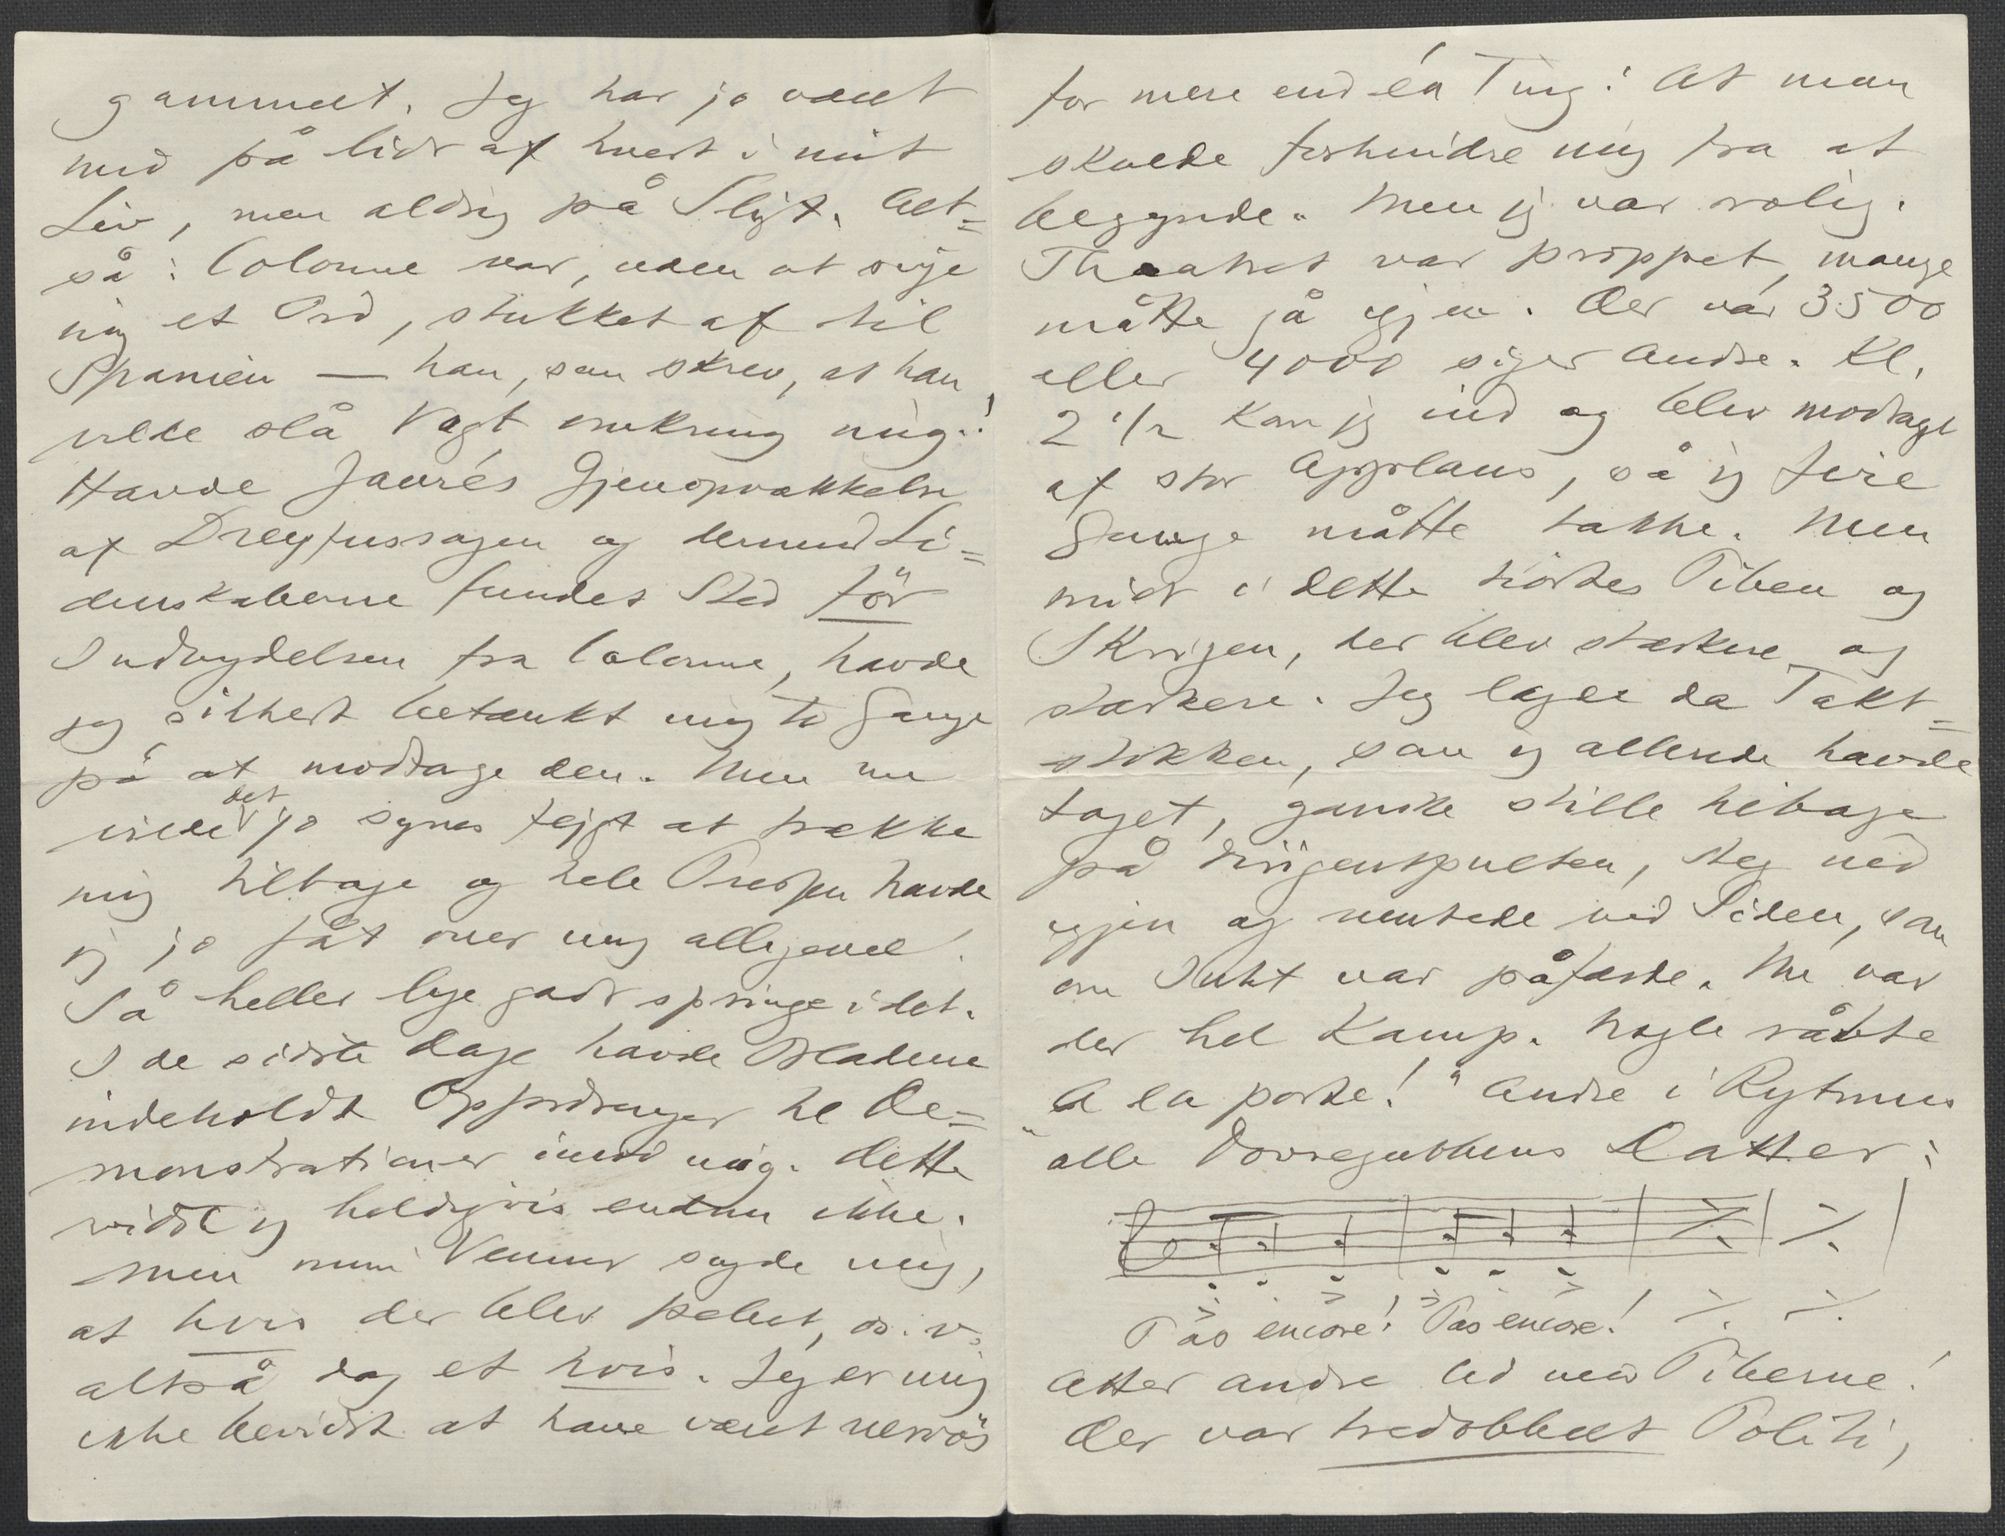 gammelt. Jeg har jo været
med på lidt af hvert i mit
Liv, men aldrig på Sligt. Alt=
så: Colonne var, uden at sige
mig et Ord, stukket af til
Spanien — han, som skrev, at han
vilde slå Vagt omkring mig!
Havde Jaurés Gjenopvækkelse
af Dreyfussagen og dermed Li=
denskaberne fundet Sted för
Indbydelsen fra Colonne, havde
jeg sikkert betænkt mig to Gange
på at modtage den. Men nu
vilde det jo synes fejgt at trække
mig tilbage og hele Pressen havde
jeg jo fåt over mig alligevel.
Så heller lige godt springe i det.
I de sidste Dage havde Bladene
indeholdt Opfordringer til De=
monstrationer imod mig. Dette
vidste jeg heldigvis endnu ikke.
Men mine Venner sagde mig,
at hvis der blev pebet, o.s.v.
altså dog et hvis. Jeg er mig
ikke bevidst at have været nervös
for mere end én Ting: At man
skulde forhindre mig fra at
begynde. Men jeg var rolig.
Theatret var proppet, mange
måtte gå igjen. Der var 3500
eller 4000 siger Andre. Kl.
2 1/2 kom jeg ind og blev modtaget
af stor Applaus, så jeg fire
Gange måtte takke. Men
midt i dette hördes Piben og
Skrigen, der blev stærkere og
stærkere. Jeg lagde da Takt=
stokken, som jeg allerede havde
taget, ganske stille tilbage
på Dirigentpulten, steg ned
igjen og ventede ved Siden, som
om Intet var påfærde. Nu var
der hel Kamp. Nogle råbte
"A la porte!" Andre i Rytmus
à la Dovregubbens Datter:
Pas encore! Pas encore!
Atter andre lod med Piberne!
Der var tredobbelt Politi,